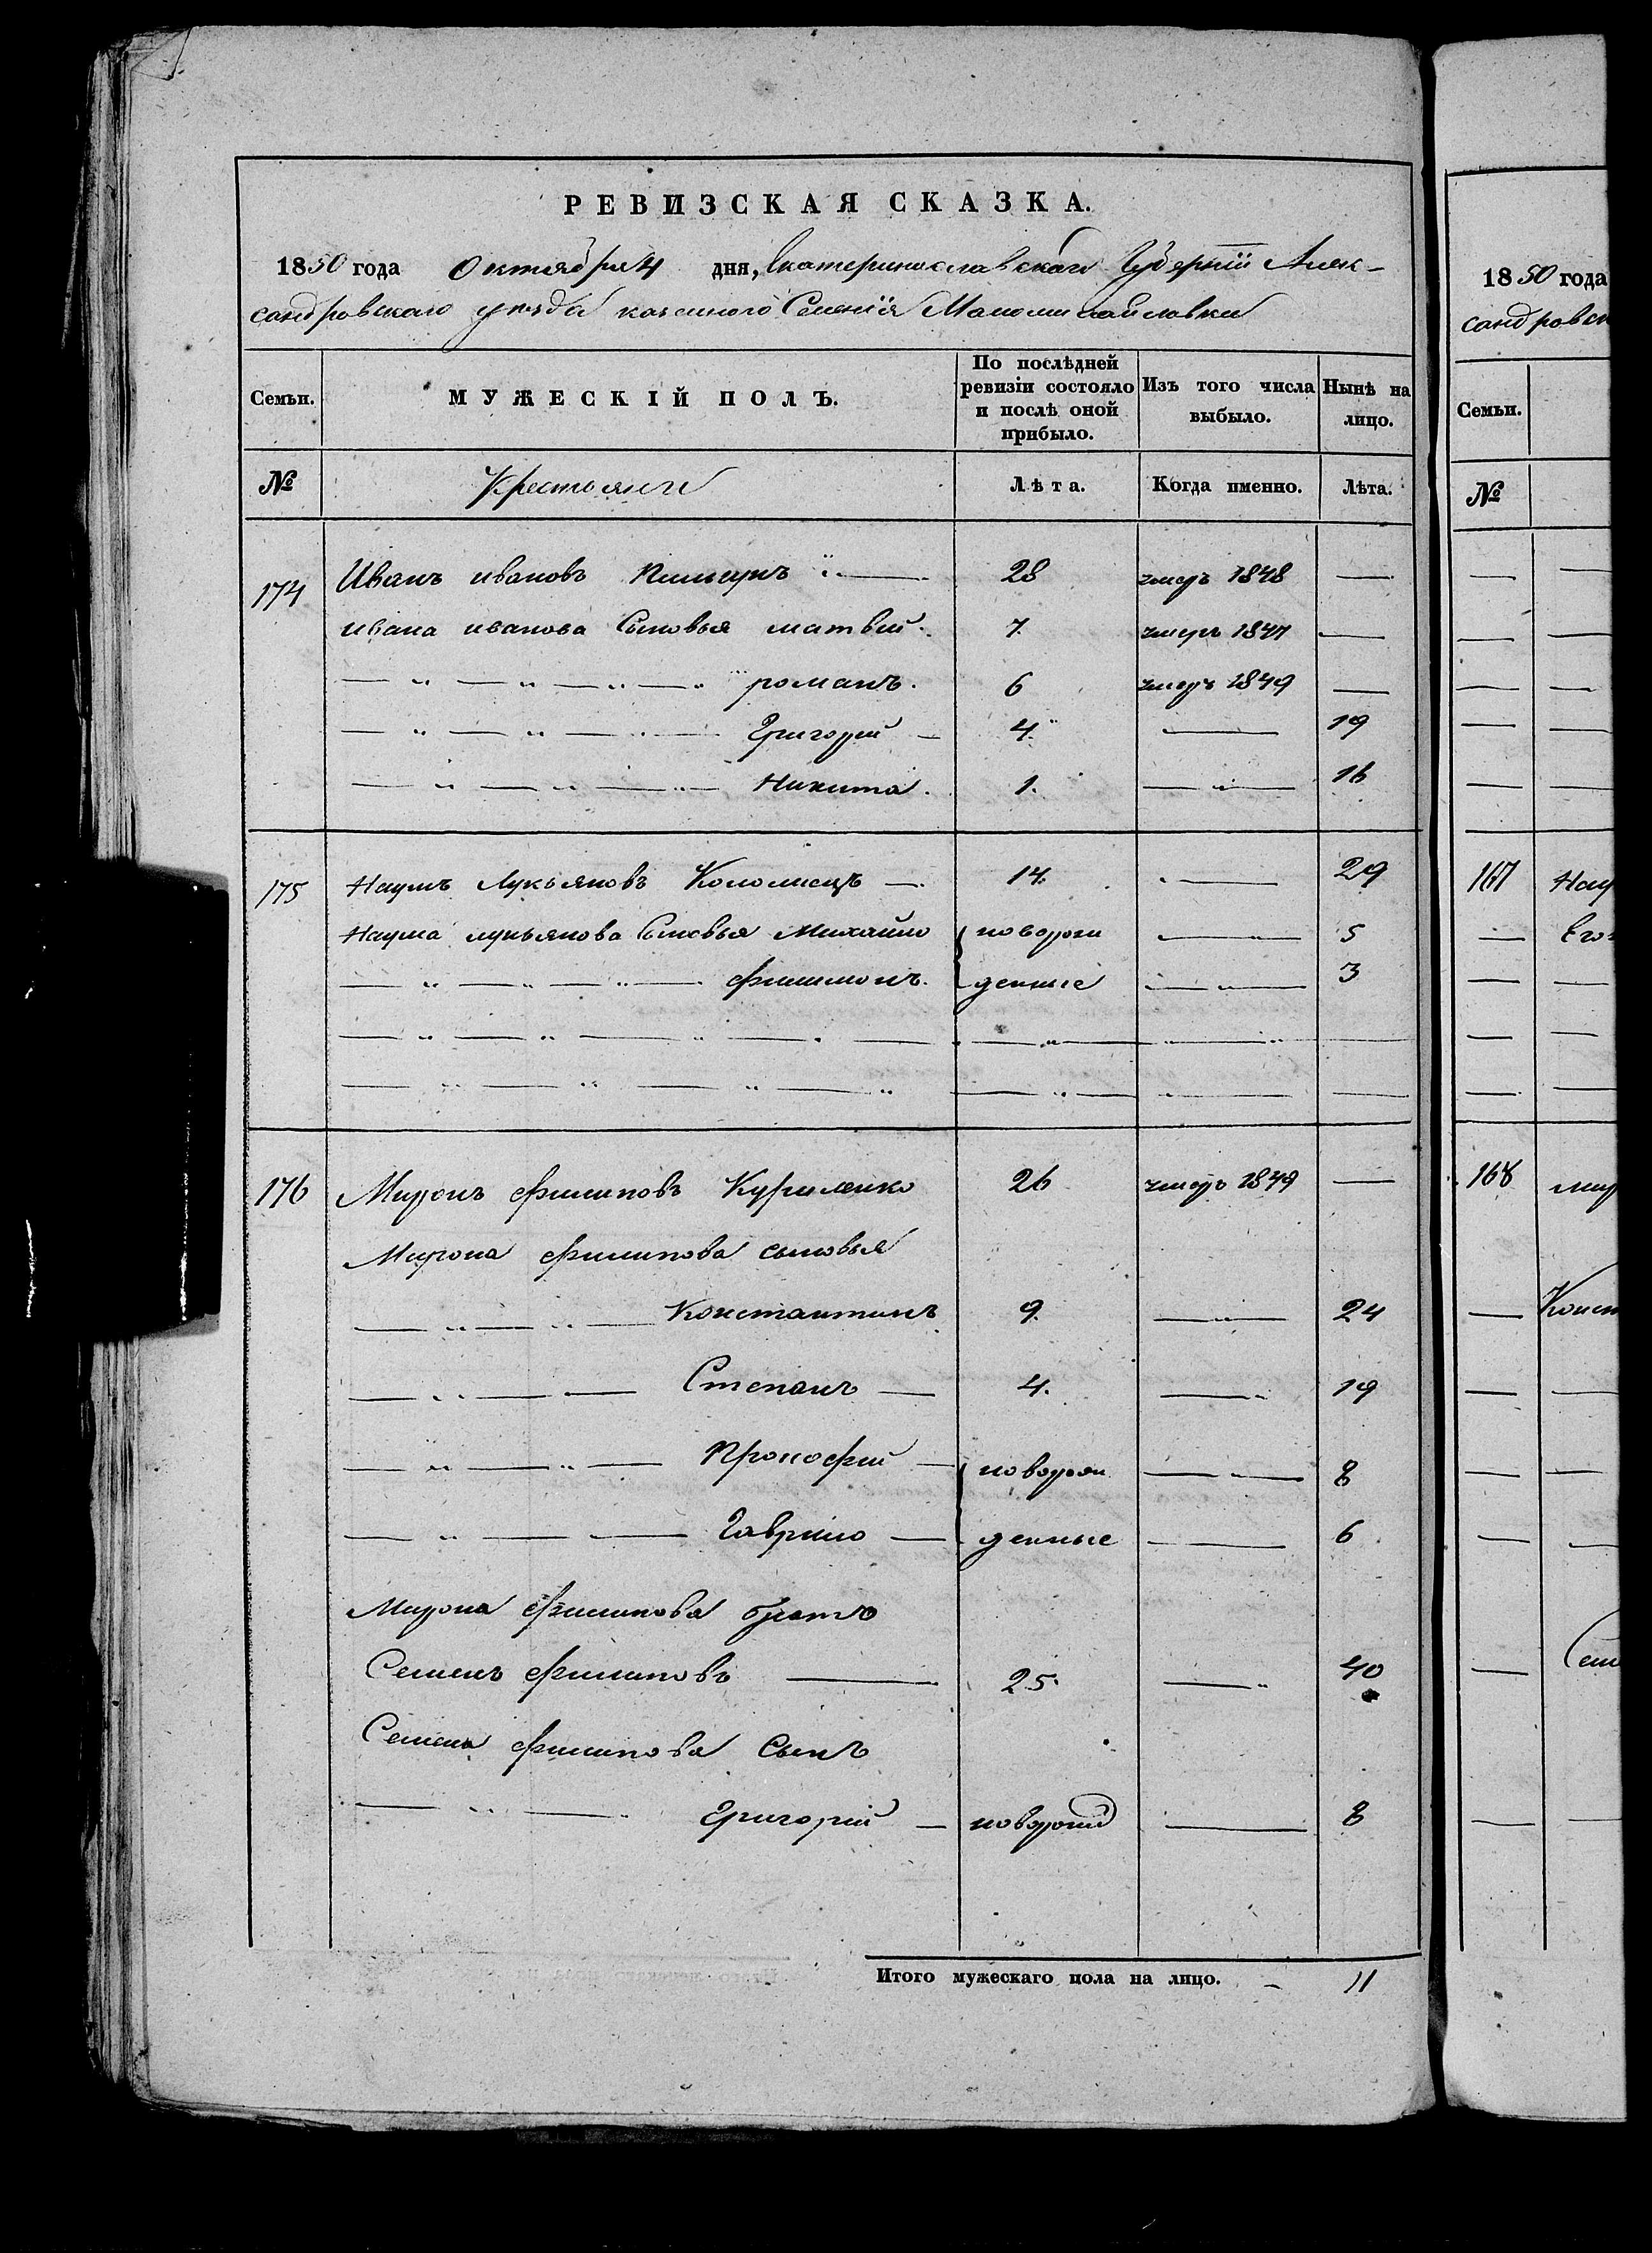 РЕВИЗСКАЯ СКАЗКА.
1850 года Октября 4 дня, Екатеринославской Губернии Алек-
сандровскаго уезда казенного Селения Маломихайловки
Семьи. МУЖЕСКІЙ ПОЛЪ. По послѣдней ревизіи состояло и послѣ оной прибыло. Изъ того числа выбыло. Нынѣ на лицо.
№ Крестьяне Лѣта. Когда именно. Лѣта.
174 Иванъ иванов 28 умеръ 1848 —
ивана иванова Сыновья матвей 7. умеръ 1847 —
романъ. 6 умеръ 1849 —
Григорий 4. — 19
Никита. 1. — 16
175 Наумъ Лукьяновъ Коломиецъ 14. — 29
Наума лукьянова Сыновья Михайло новорож 5
Филимонъ. денные 3
176 Миронъ филиповъ Куриленко 26 умеръ 1849 —
Мирона филипова сыновья
Константинъ 9. — 24
Степанъ — 4. — 19
Прокофий — новорож 8
Гаврило — денные 6
Мирона филипова братъ
Семенъ филиповъ — 25. — 40
Семена филипова Сынъ
Григорий — новорожд — 8
Итого мужескаго пола на лицо. — 11
1850 года
сандровск
Семьи.
№
167 Нау
Его
168 мир
Конст
Сем